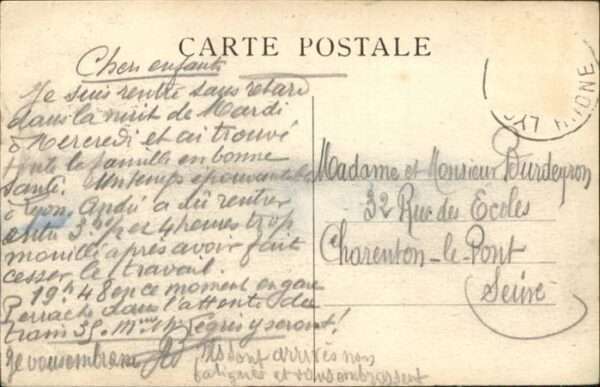 CARTE POSTALE
Chers enfants
Je suis rentré sans retard
dans la nuit de Mardi
à Mercredi et ai trouvé
toute la famille en bonne
santé. Un temps épouvantable
à Lyon, André a dû rentrer
3h 4 heures trop
mouillé après avoir fait
cesser le travail.
19h48 en ce moment en gare
Perrache dans l'attente du
train 35. Mme Nègre y seront!
Je vous embrasse
Ils sont arrivés non
fatigués et vous embrassent
Madame et Monsieur Burdeyron
32 Rue des Ecoles
Charenton-le-Pont
Seine
LYON RHONE